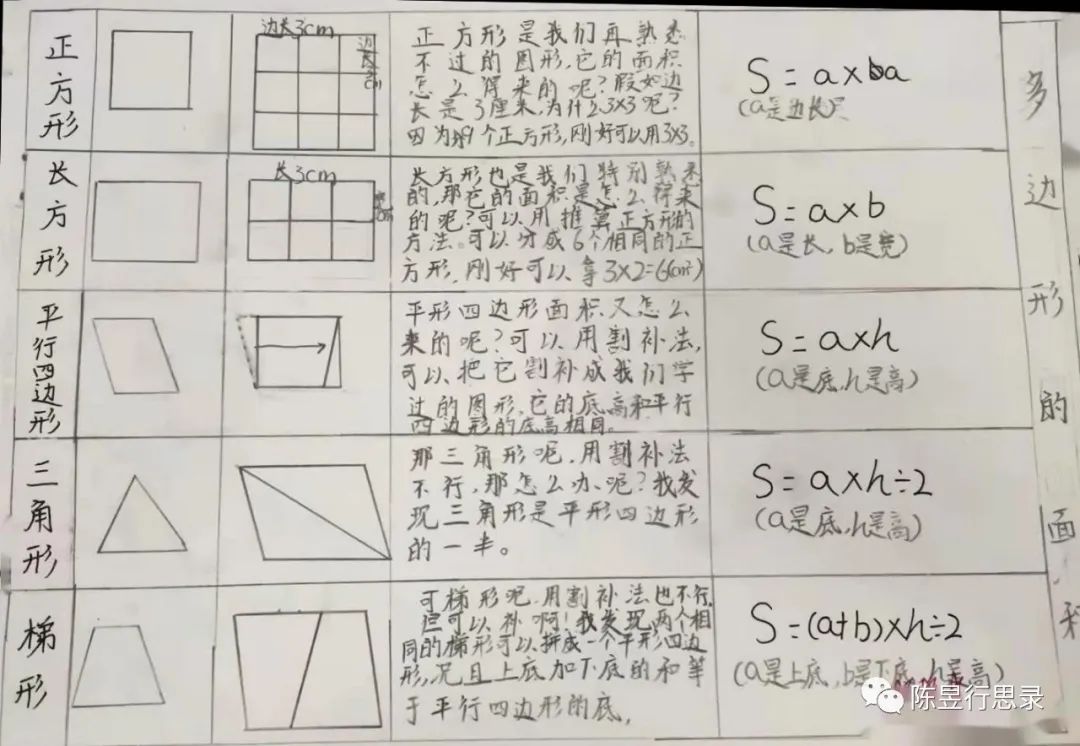 正方形
边长3cm
边长3cm
正方形是我们再熟悉
不过的图形,它的面积
怎么得来的呢?假如边
长是3厘米,为什么3×3呢?
因为有9个正方形,刚好可以用3×3。
S=a×a
(a是边长)
长方形
长3cm
长方形也是我们特别熟悉
的,那它的面积是怎么得来
的呢?可以用推算正方形的
方法。可以分成6个相同的正
方形,刚好可以拿3×2=6(cm²)
S=a×b
(a是长,b是宽)
平行四边形
平形四边形面积又怎么
来的呢?可以用割补法,
可以把它割补成我们学
过的图形,它的底高和平行
四边形的底高相同。
S=a×h
(a是底,h是高)
三角形
那三角形呢,用割补法
不行,那怎么办呢?我发
现三角形是平形四边形
的一半。
S=a×h÷2
(a是底,h是高)
梯形
可梯形呢,用割补法也不行,
但可以补啊!我发现,两个相
同的梯形可以拼成一个平形四边
形,况且上底加下底的和等
于平行四边形的底,
S=(a+b)×h÷2
(a是上底,b是下底,h是高)
多边形的面积
陈昱行思录